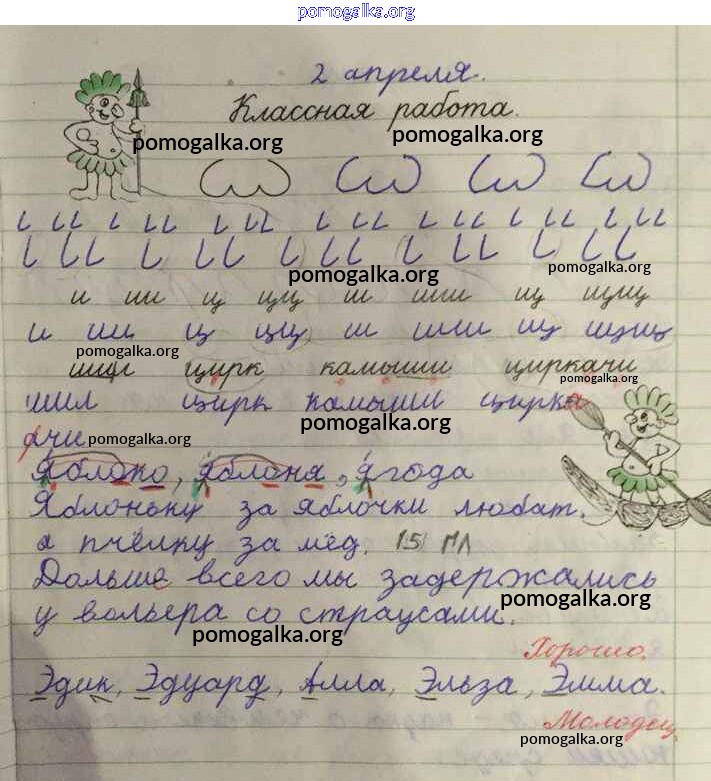 pomogalka.org
2 апреля.
Классная работа.
pomogalka.org pomogalka.org
pomogalka.org
pomogalka.org
и ии ц цц ш шш щ щщ
и ии ц цц ш шш щ щщ
pomogalka.org
шил цирк камыши циркачи
pomogalka.org
шил цирк камыши цирка
pomogalka.org
ачи pomogalka.org
Яблоко, яблоня, ягода
Яблоньку за яблочки любят,
а пчёлку за мёд. 15
Дольше всего мы задержались
pomogalka.org
у вольера со страусами.
pomogalka.org
Хорошо.
Эдик, Эдуард, Алла, Эльза, Эмма.
Молодец
pomogalka.org